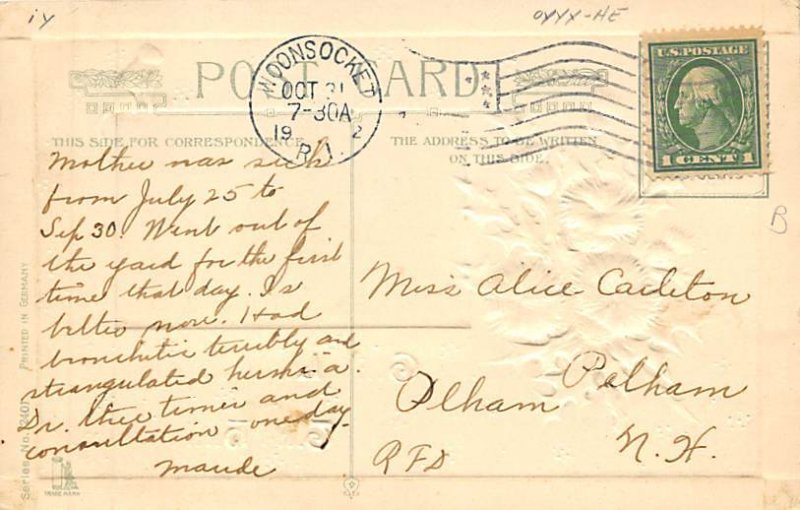 iy
OYYX-HE
POST CARD
WOONSOCKET
OCT 21
7-30A
19 2
R.I.
U.S. POSTAGE
1 CENT 1
B
THIS SIDE FOR CORRESPONDENCE
THE ADDRESS TO BE WRITTEN
ON THIS SIDE.
Mother was sick
from July 25 to
Sep 30. Went out of
the yard for the first
time that day. Is
better now. Had
bronchitis terribly and
strangulated hernia.
Dr. three times and
consultation one day.
Maude
Miss Alice Carleton
Olham Pelham
RFD N.H.
Series No.
PRINTED IN GERMANY
TRADE MARK